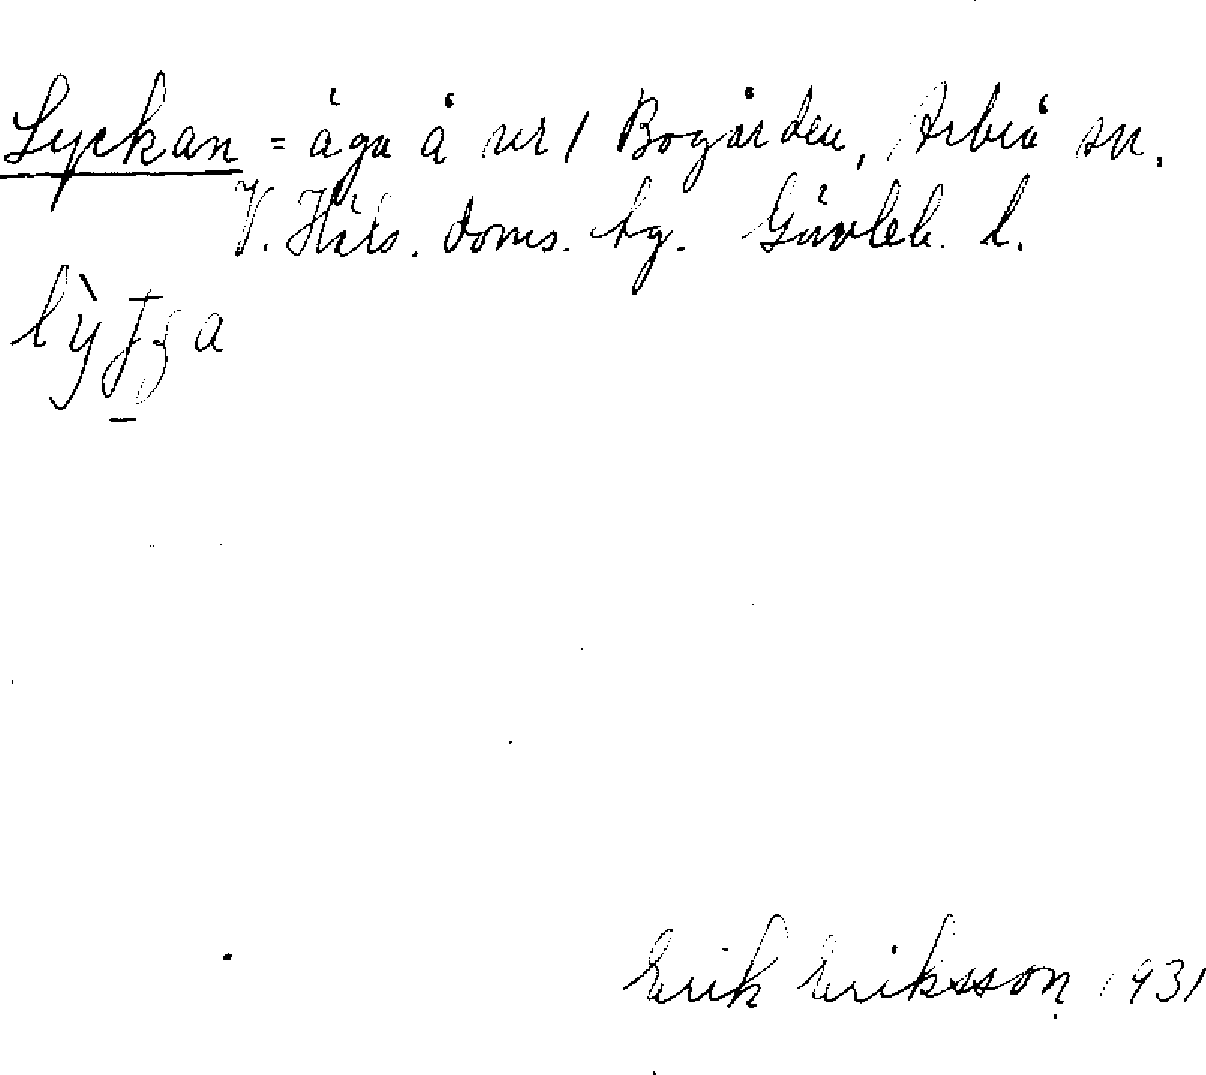 Lyckan = äga å nr 1 Bogården, Arbrå sn.
V. Häls. doms. tg. Gävleb. l.
Erik Eriksson 1931